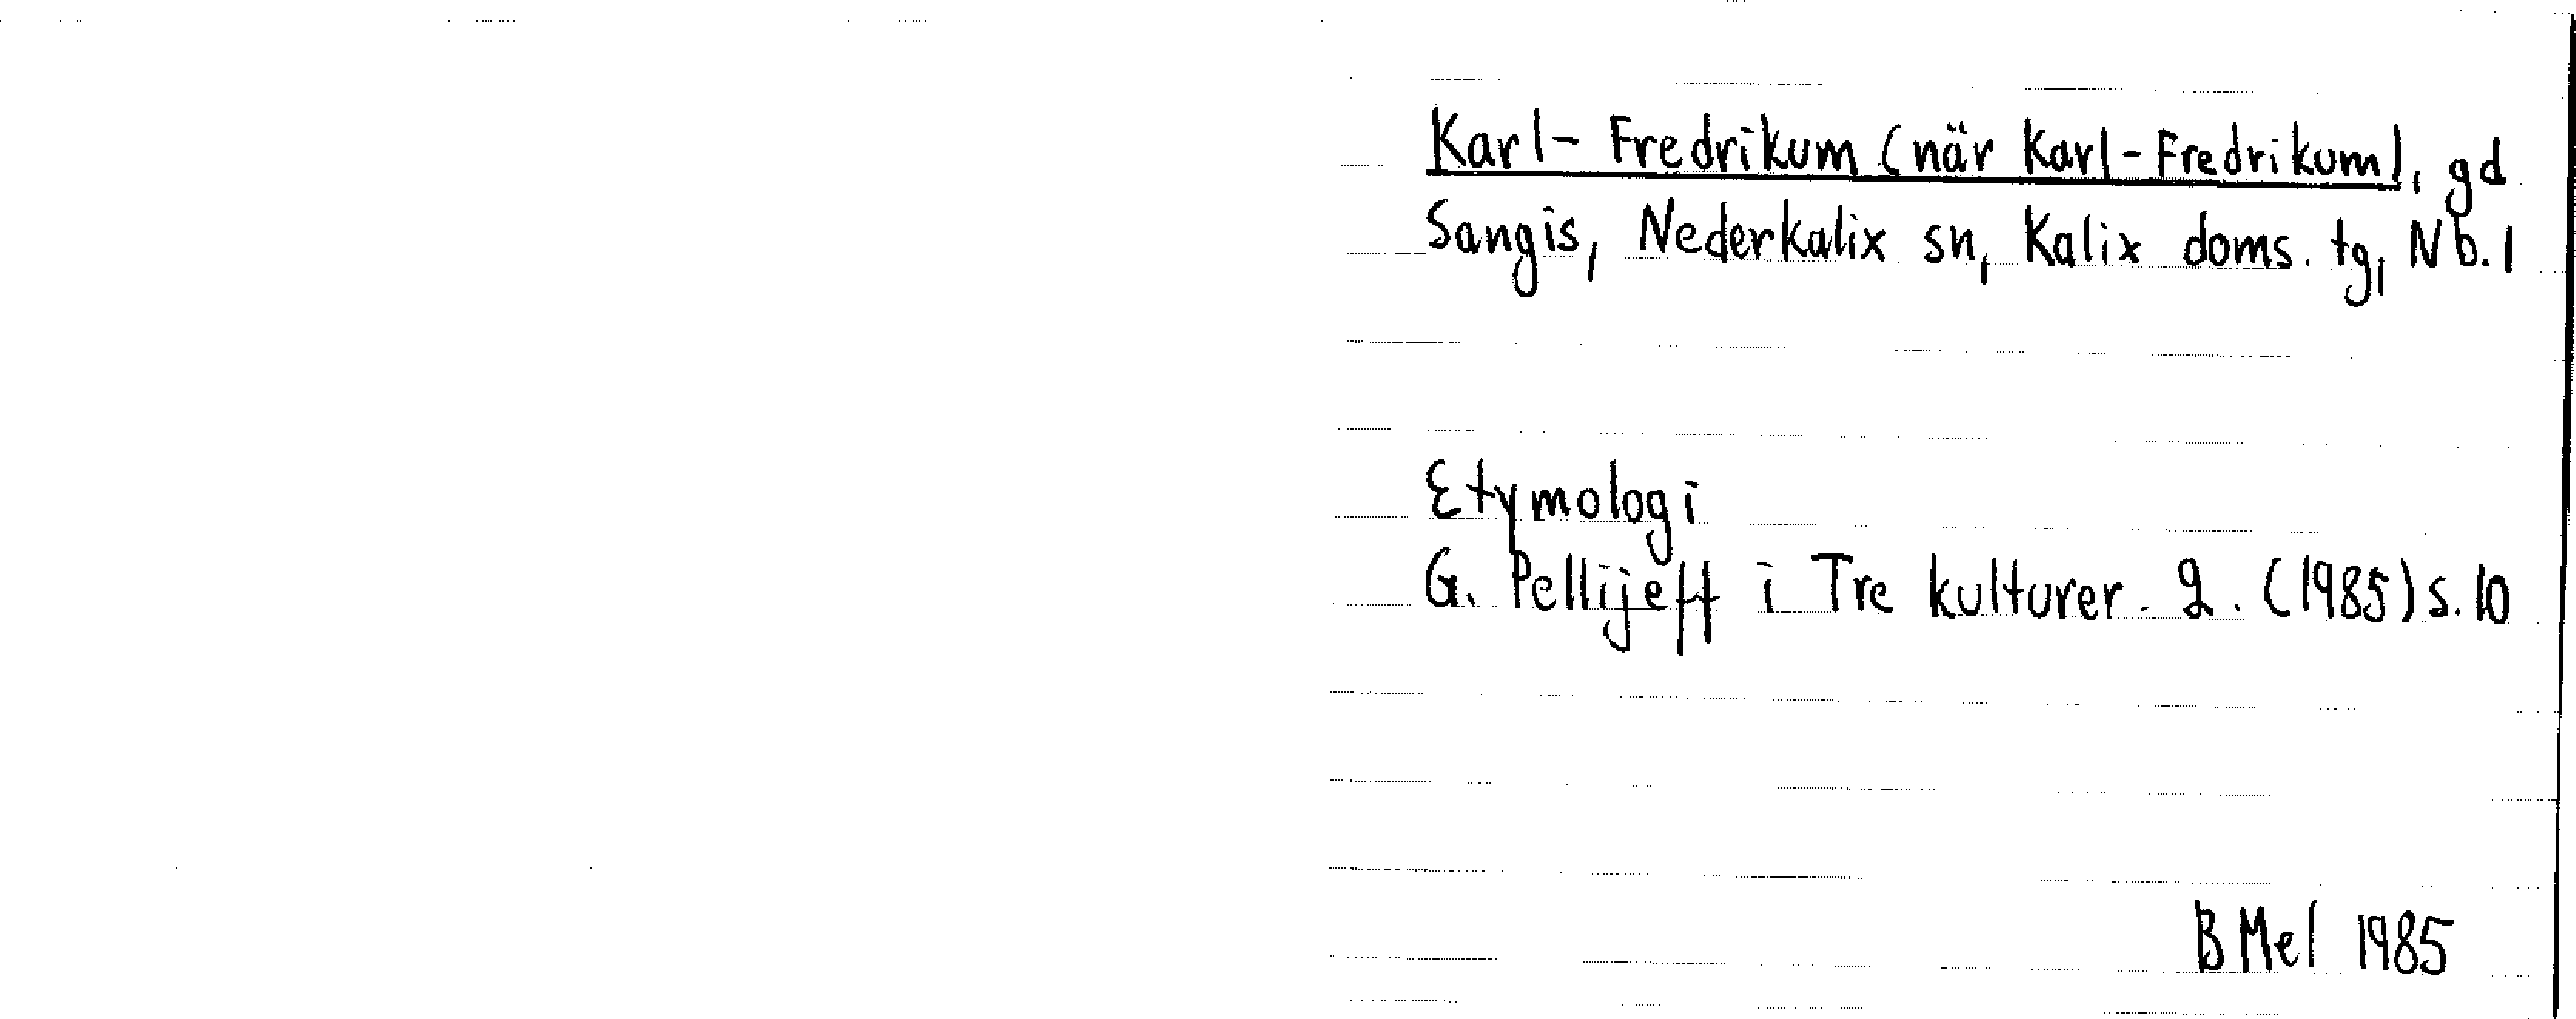 Karl-Fredrikum (när Karl-Fredrikum), gd
Sangis, Nederkalix sn, Kalix doms. tg, Nb. l
Etymologi
G. Pellijeff i Tre kulturer. 2. (1985) s. 10
B Mel 1985